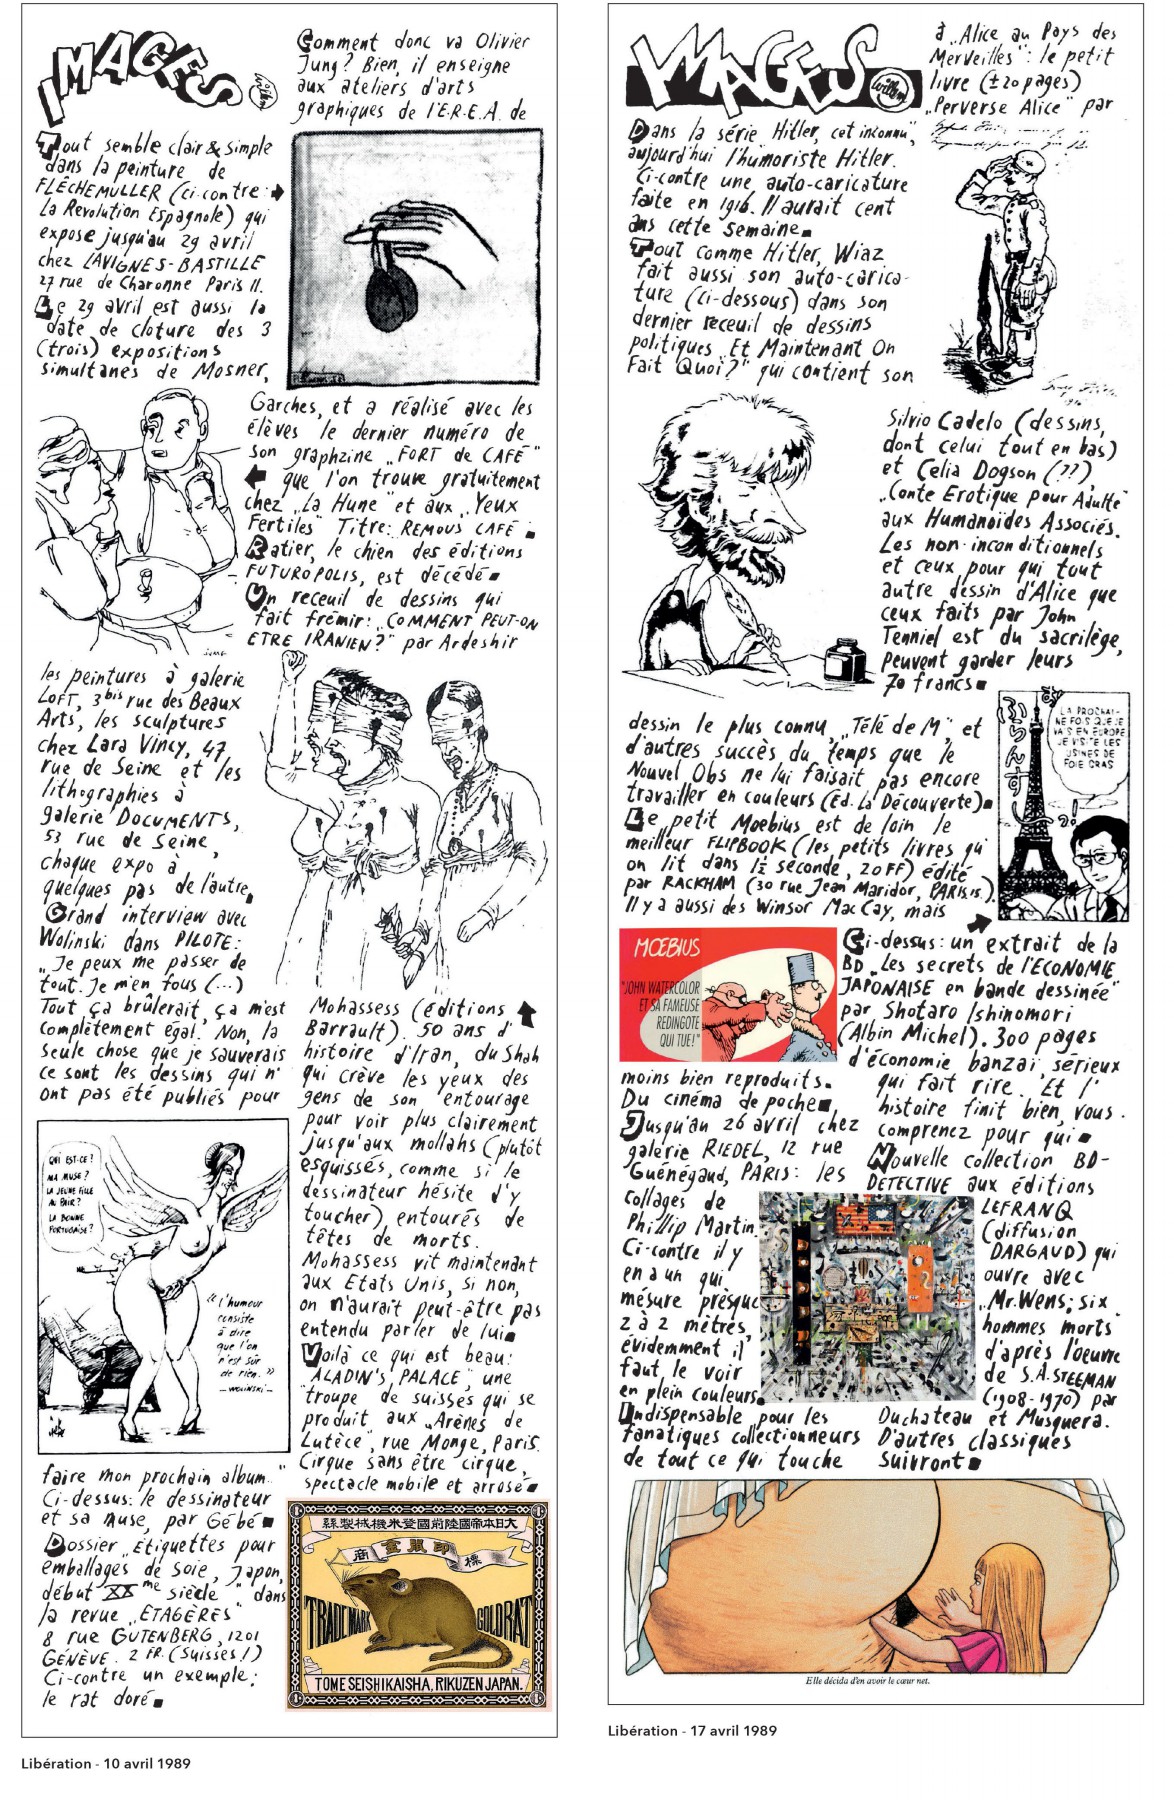 IMAGES
Willem
Tout semble clair & simple
dans la peinture de
FLÊCHEMULLER (ci-contre:
La Revolution Espagnole) qui
expose jusqu'au 29 avril
chez LAVIGNES-BASTILLE
27 rue de Charonne Paris 11.
Le 29 avril est aussi la
date de cloture des 3
(trois) expositions
simultanés de Mosner,
les peintures à galerie
LOFT, 3bis rue des Beaux
Arts, les sculptures
chez Lara Vincy, 47
rue de Seine et les
lithographies à
galerie DOCUMENTS,
53 rue de Seine,
chaque expo à
quelques pas de l'autre.
Grand interview avec
Wolinski dans PILOTE:
„Je peux me passer de
tout. Je m'en fous (...)
Tout ça brûlerait, ça m'est
complètement égal. Non, la
seule chose que je sauverais
ce sont les dessins qui n'
ont pas été publiés pour
QUI EST-CE?
MA MUSE?
LA JEUNE FILLE
AU PAIR?
LA BONNE
PORTUGAISE?
« l'humour
consiste
à dire
que l'on
n'est sûr
de rien. »
—WOLINSKI—
faire mon prochain album."
Ci-dessus: le dessinateur
et sa Muse, par Gébé
Dossier „Etiquettes pour
emballages de soie, Japon,
début XXme siècle" dans
la revue „ETAGÈRES"
8 rue GUTENBERG, 1201
GENÈVE. 2 FR. (Suisses!)
Ci-contre un exemple:
le rat doré
Comment donc va Olivier
Jung? Bien, il enseigne
aux ateliers d'arts
graphiques de l'E.R.E.A. de
Garches, et a réalisé avec les
élèves le dernier numéro de
son graphzine „FORT de CAFÉ"
que l'on trouve gratuitement
chez „La Hune" et aux „Yeux
Fertiles" Titre: REMOUS CAFÉ
Ratier, le chien des éditions
FUTUROPOLIS, est décédé
Un receuil de dessins qui
fait frémir: „COMMENT PEUT-ON
ETRE IRANIEN?" par Ardeshir
JUNG
Mohassess (éditions
Barrault). 50 ans d'
histoire d'Iran, du Shah
qui crève les yeux des
gens de son entourage
pour voir plus clairement
jusqu'aux mollahs (plutôt
esquissés, comme si le
dessinateur hésite d'y
toucher), entourés de
têtes de morts.
Mohassess vit maintenant
aux Etats Unis, si non,
on n'aurait peut-être pas
entendu parler de lui
Voilà ce qui est beau:
„ALADIN'S PALACE", une
troupe de suisses qui se
produit aux „Arènes de
Lutèce", rue Monge, Paris.
Cirque sans être cirque,
spectacle mobile et arrosé
大日本帝國陸前國登米機械製絲
商 金鼠印 標
TRADE MARK GOLD RAT
TOME SEISHIKAISHA, RIKUZEN JAPAN.
Libération - 10 avril 1989
IMAGES
Willem
Dans la série „Hitler, cet inconnu",
aujourd'hui l'humoriste Hitler.
Ci-contre une auto-caricature
faite en 1916. Il aurait cent
ans cette semaine
Tout comme Hitler, Wiaz
fait aussi son auto-carica-
ture (ci-dessous) dans son
dernier receuil de dessins
politiques „Et Maintenant On
Fait Quoi?" qui contient son
dessin le plus connu, „Télé de M", et
d'autres succès du temps que le
Nouvel Obs ne lui faisait pas encore
travailler en couleurs (Ed. La Découverte)
Le petit Moebius est de loin le
meilleur FLIPBOOK (les petits livres qu'
on lit dans 1½ seconde, 20FF) édité
par RACKHAM (30 rue Jean Maridor, PARIS 15).
Il y a aussi des Winsor MacCay, mais
MŒBIUS
"JOHN WATERCOLOR
ET SA FAMEUSE
REDINGOTE
QUI TUE!"
moins bien reproduits.
Du cinéma de poche
Jusqu'au 26 avril chez
galérie RIEDEL, 12 rue
Guénégaud, PARIS: les
collages de
Phillip Martin.
Ci-contre il y
en a un qui
mésure prèsque
2 à 2 mètres,
évidemment il
faut le voir
en plein couleurs.
Indispensable pour les
fanatiques collectionneurs
de tout ce qui touche
à „Alice au Pays des
Merveilles": le petit
livre (±20 pages)
„Perverse Alice" par
Silvio Cadelo (dessins,
dont celui tout en bas)
et Celia Dogson (??),
„Conte Erotique pour Adulte"
aux Humanoïdes Associés.
Les non-inconditionnels
et ceux pour qui tout
autre dessin d'Alice que
ceux faits par John
Tenniel est du sacrilège,
peuvent garder leurs
70 francs
ふらんすし
LA PROCHAI-
NE FOIS QUE JE
VAIS EN EUROPE
JE VISITE LES
USINES DE
FOIE GRAS
Ci-dessus: un extrait de la
BD „Les secrets de l'ECONOMIE
JAPONAISE en bande dessinée"
par Shotaro Ishinomori
(Albin Michel). 300 pages
d'économie banzaï, sérieux
qui fait rire. Et l'
histoire finit bien, vous
comprenez pour qui
Nouvelle collection BD-
DETECTIVE aux éditions
LEFRANQ
(diffusion
DARGAUD) qui
ouvre avec
„Mr. Wens: six
hommes morts"
d'après l'oeuvre
de S.A. STEEMAN
(1908-1970) par
Duchateau et Musquera.
D'autres classiques
suivront
Elle décida d'en avoir le cœur net.
Libération - 17 avril 1989